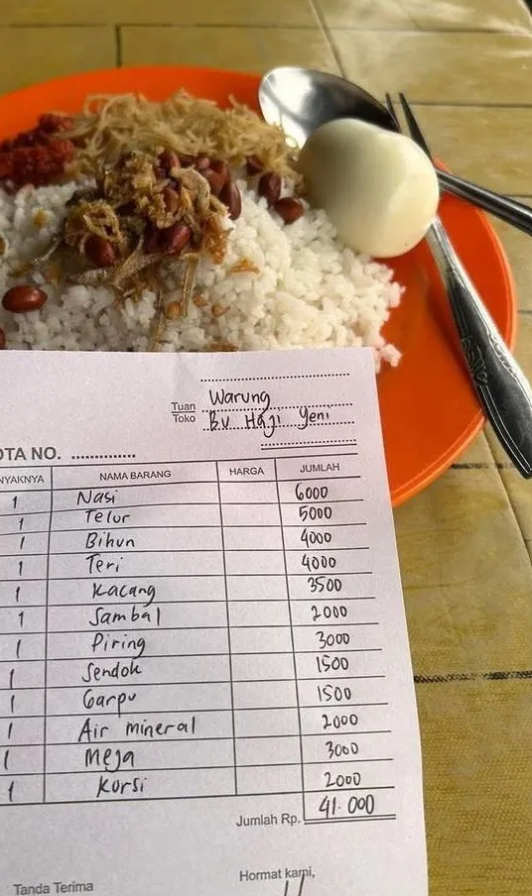 Tuan Warung
Toko Bu Haji Yeni
OTA NO. ..............
NYAKNYA NAMA BARANG HARGA JUMLAH
1 Nasi 6000
1 Telur 5000
1 Bihun 4000
1 Teri 4000
1 Kacang 3500
1 Sambal 2000
1 Piring 3000
1 Sendok 1500
1 Garpu 1500
1 Air mineral 2000
1 Meja 3000
1 Kursi 2000
Jumlah Rp. 41.000
Tanda Terima Hormat kami,